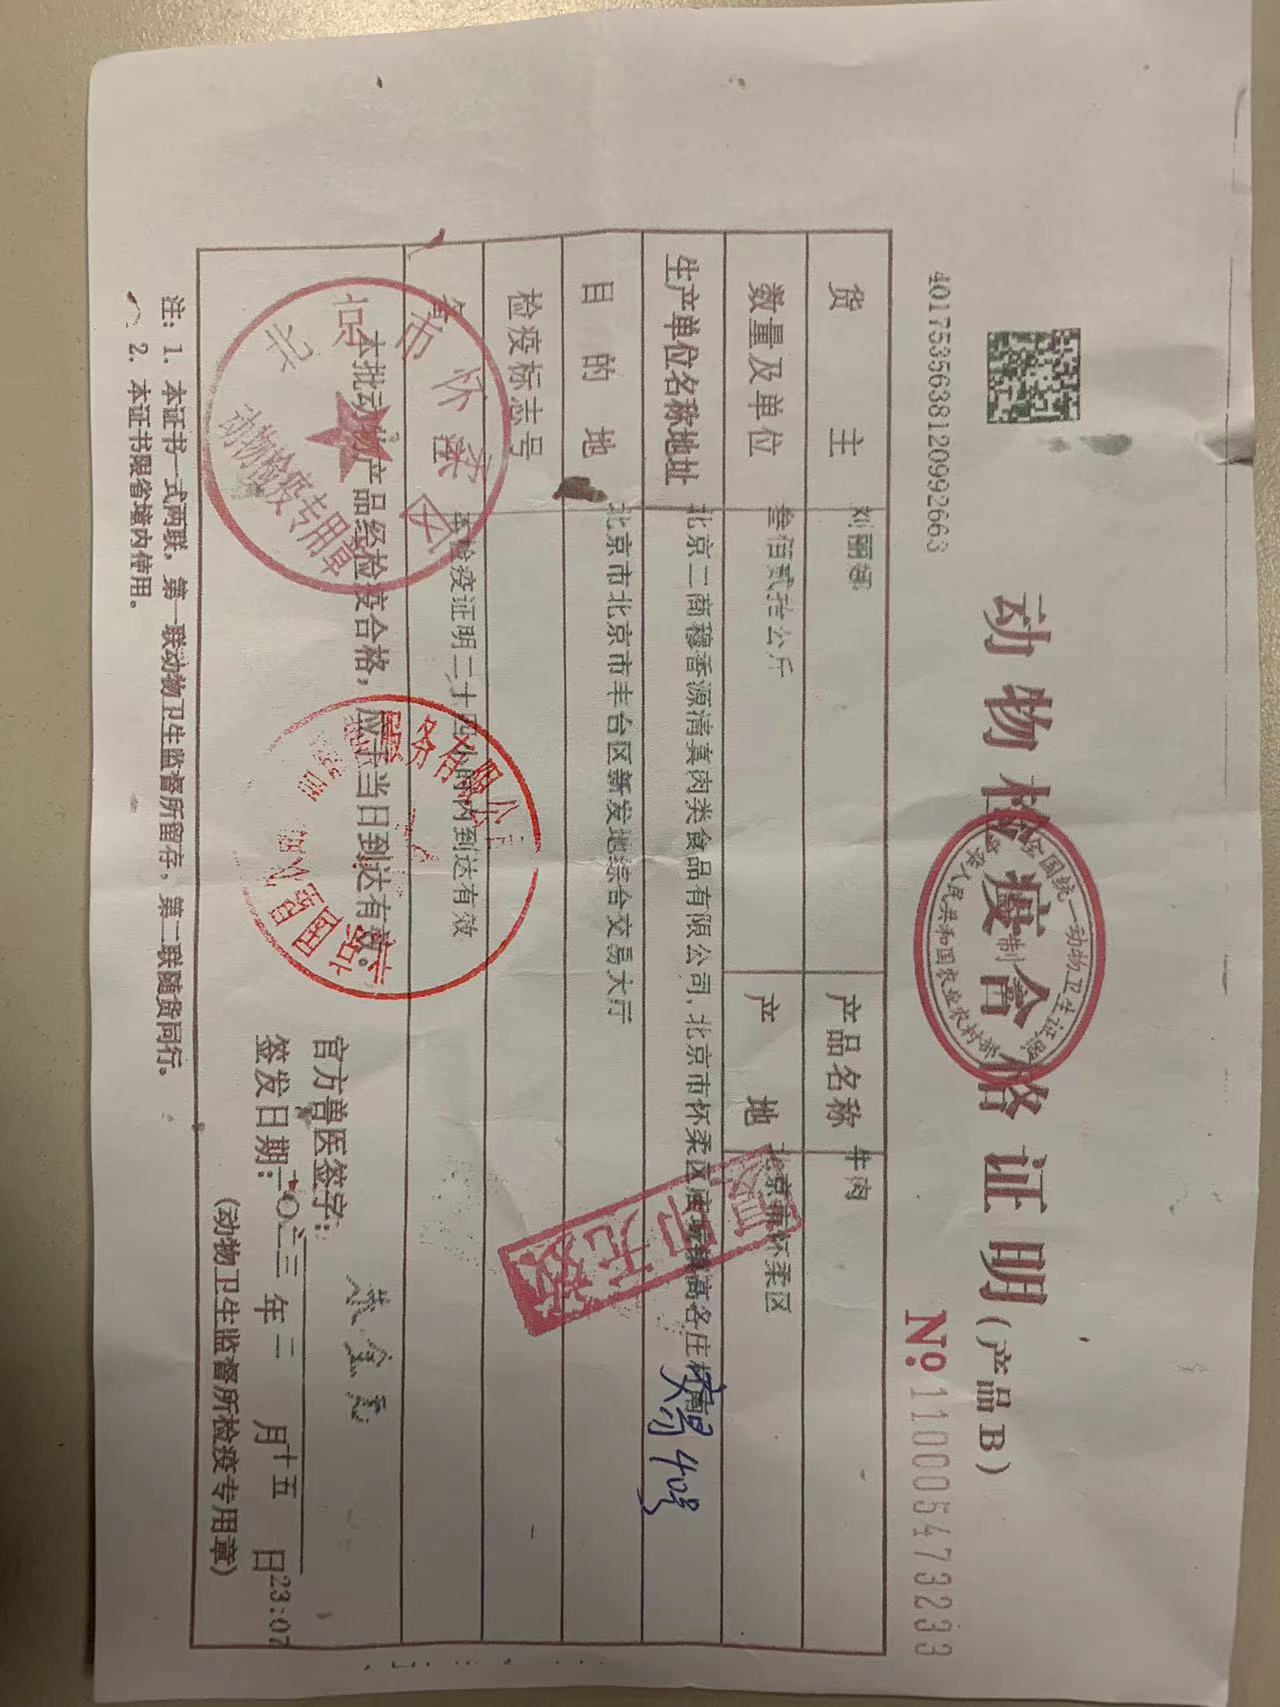 4017535638120992663
动物检疫合格证明（产品B）
全国统一动物卫生证照
中华人民共和国农业农村部
制
№ 110005473233
货主 刘丽娜 产品名称 牛肉
数量及单位 叁佰贰拾公斤 产地 北京市怀柔区
生产单位名称地址 北京二商穆香源清真肉类食品有限公司,北京市怀柔区庙城镇高各庄村南
40号
目的地 北京市北京市丰台区新发地综合交易大厅
检疫标志号
备注 本检疫证明二十四小时内到达有效
本批动物产品经检疫合格，应于当日到达有效。
北京市怀柔区
动物检疫专用章
服务有限公
官方兽医签字：
签发日期：二〇二三年二月十五日23:07
（动物卫生监督所检疫专用章）
注：1. 本证书一式两联，第一联动物卫生监督所留存，第二联随货同行。
2. 本证书限省境内使用。